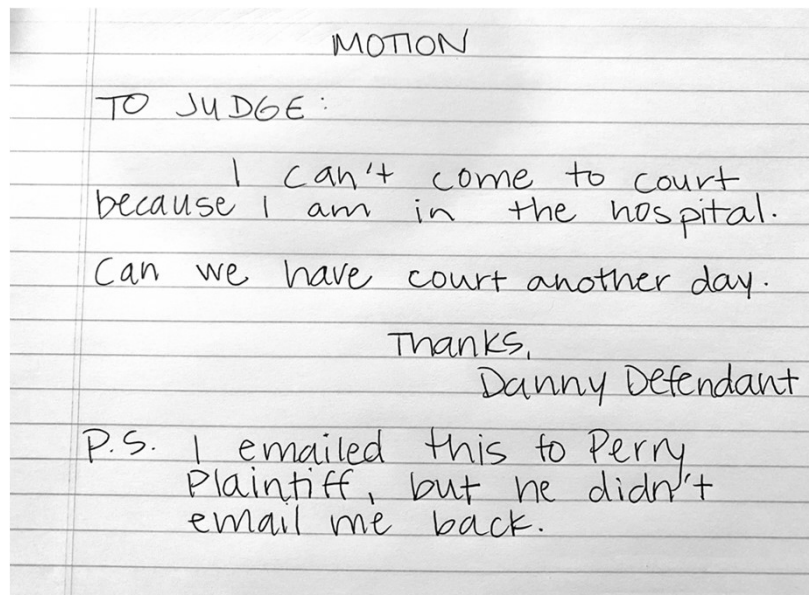 MOTION
TO JUDGE:
I can't come to court
because I am in the hospital.
Can we have court another day.
Thanks,
Danny Defendant
P.S. I emailed this to Perry
Plaintiff, but he didn't
email me back.